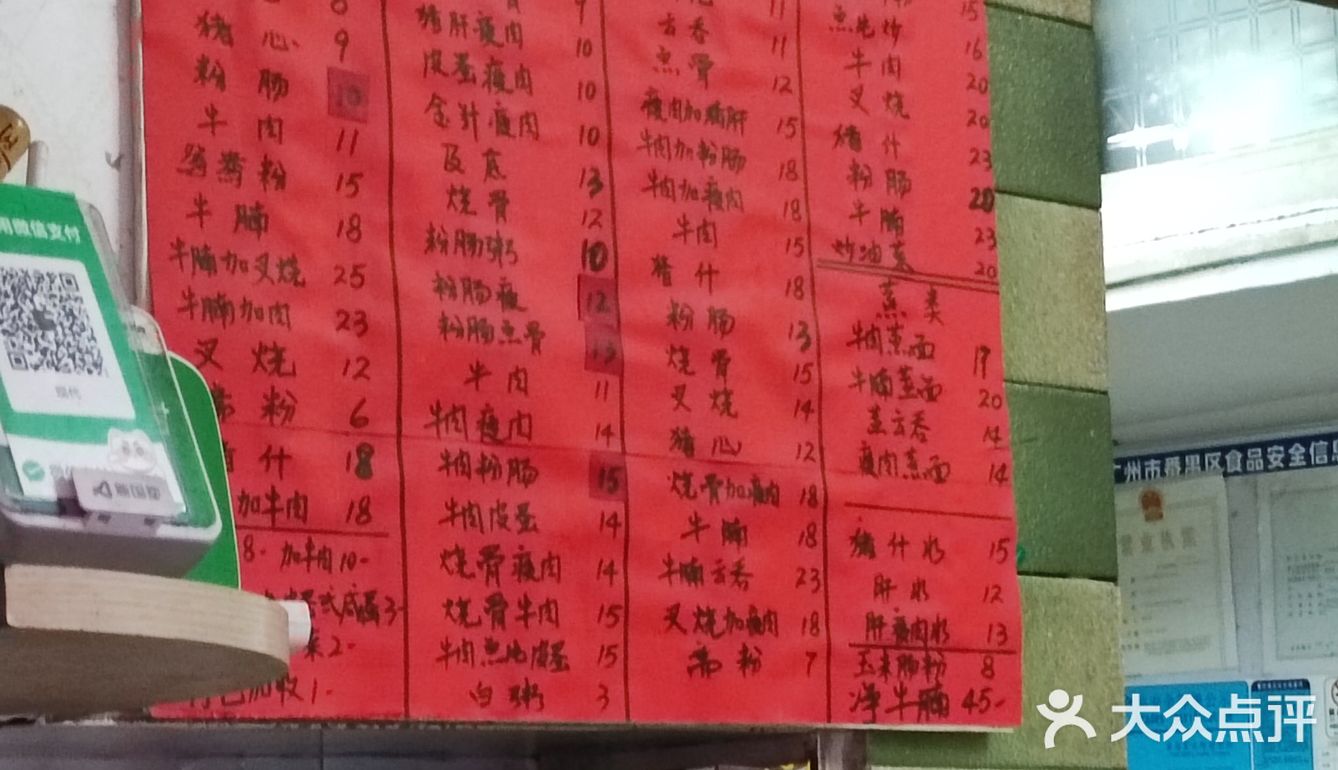 8
猪心 9
粉肠 10
牛肉 11
鸳鸯粉 15
牛腩 18
牛腩加叉烧 25
牛腩加肉 23
叉烧 12
粉 6
什 18
加牛肉 18
8- 加牛肉10-
咸蛋3-
菜2-
打包加收1-
9
猪肝瘦肉 10
皮蛋瘦肉 10
金针瘦肉 10
及底 13
烧骨 12
粉肠粥 10
粉肠瘦 12
粉肠鱼骨 13
牛肉 11
牛肉瘦肉 14
牛肉粉肠 15
牛肉皮蛋 14
烧骨瘦肉 14
烧骨牛肉 15
牛肉鱼皮蛋 15
白粥 3
11
云吞 11
鱼骨 12
瘦肉加猪肝 15
牛肉加粉肠 18
牛肉加瘦肉 18
牛肉 15
猪什 18
粉肠 13
烧骨 15
叉烧 14
猪心 12
烧骨加瘦肉 18
牛腩 18
牛腩云吞 23
叉烧加瘦肉 18
斋粉 7
15
炒 16
牛肉 20
叉烧 20
猪什 23
粉肠 20
牛腩 23
炒油菜 20
蒸类
牛肉蒸面 17
牛腩蒸面 20
蒸云吞 14
瘦肉蒸面 14
猪什水 15
肝水 12
肝瘦肉水 13
玉米肠粉 8
净牛腩 45-
用微信支付
广州市番禺区食品安全信息
营业执照
大众点评